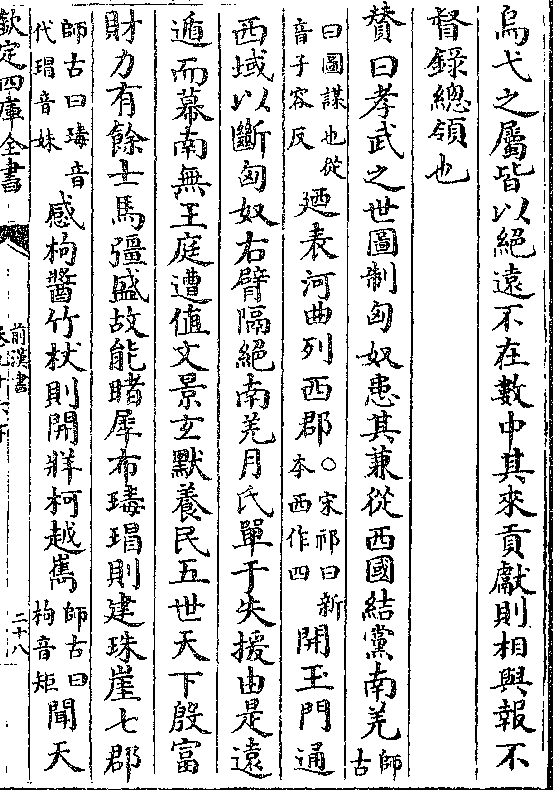 烏弋之屬皆以絕遠不在數中其來貢獻則相與報不
督錄總領也
贊曰孝武之世圖制匈奴患其兼從西國結黨南羌師古
曰圖謀也從音子容反廼表河曲列西郡○宋祁曰新本西作四開玉門通
西域以斷匈奴右臂隔絕南羌月氏單于失援由是遠
遁而幕南無王庭遭值文景玄默養民五世天下殷富
財力有餘士馬彊盛故能睹犀布瑇瑁則建珠崖七郡
師古曰瑇音代瑁音妹感枸醬竹杖則開牂柯越嶲師古曰枸音矩聞天
欽定四庫全書
前漢書
二十八